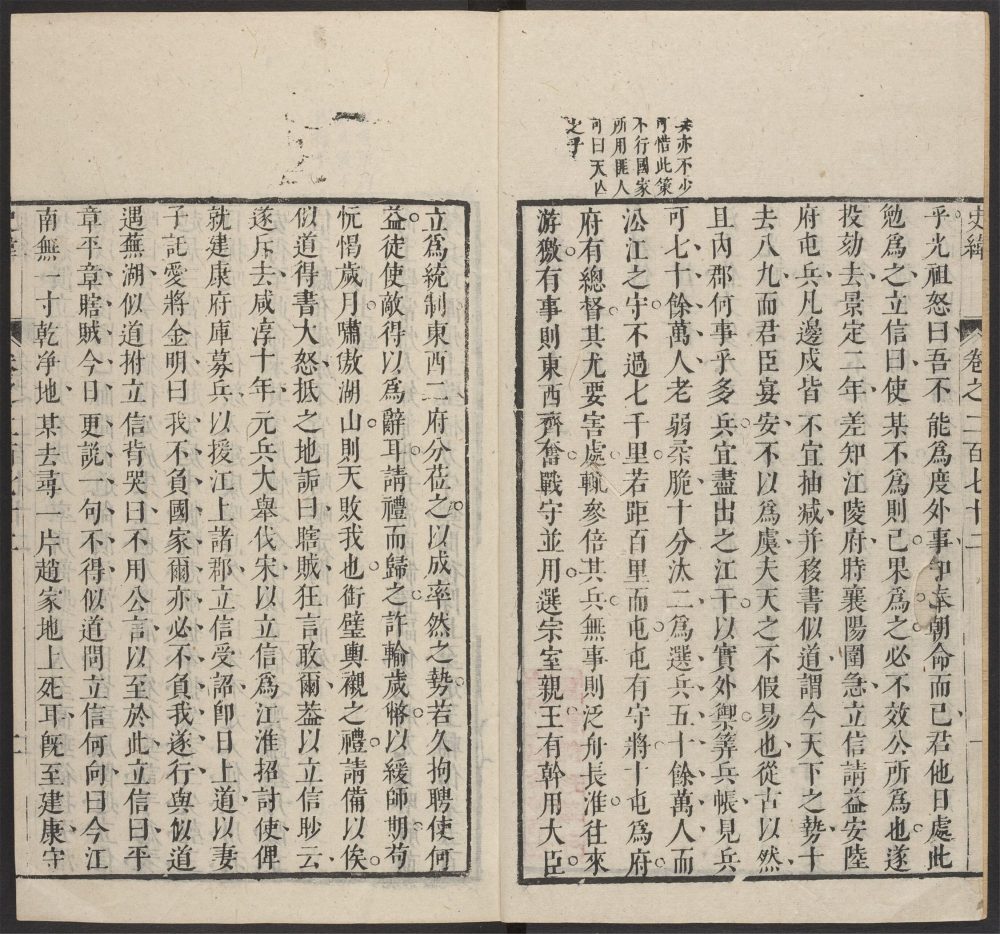 史緯
卷之二百七十二
一
乎光祖怒曰吾不能爲度外事知奉朝命而已君他日處此
勉爲之立信曰使某不爲則已果爲之必不效公所爲也遂
投劾去景定二年差知江陵府時襄陽圍急立信請益安陸
府屯兵凡邊戍皆不宜抽减并移書似道謂今天下之勢十
去八九而君臣宴安不以爲虞夫天之不假易也從古以然
且內郡何事乎多兵宜盡出之江干以實外禦筭兵帳見兵
可七十餘萬人老弱柔脆十分汰二爲選兵五十餘萬人而
㳂江之守不過七千里若距百里而屯屯有守將十屯爲府
府有總督其尤要害處輒參倍其兵無事則泛舟長淮往來
游徼有事則東西齊奮戰守並用選宗室親王有幹用大臣
兵亦不少
可惜此策
不行國家
所用匪人
可曰天亾
之乎
立爲統制東西二府分莅之以成率然之勢若久拘聘使何
益徒使敵得以爲辭耳請禮而歸之許輸歲幣以緩師期苟
忨愒歲月嘯傲湖山則天敗我也銜璧輿櫬之禮請備以俟
似道得書大怒抵之地詬曰瞎賊狂言敢爾葢以立信眇云
遂斥去咸淳十年元兵大舉伐宋以立信爲江淮招討使俾
就建康府庫募兵以援江上諸郡立信受詔卽日上道以妻
子託愛將金明曰我不負國家爾亦必不負我遂行與似道
遇蕪湖似道拊立信背哭曰不用公言以至於此立信曰平
章平章瞎賊今日更說一句不得似道問立信何向曰今江
南無一寸乾净地某去尋一片趙家地上死耳旣至建康守